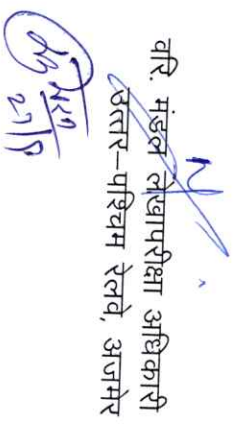 वरि. मंडल लेखापरीक्षा अधिकारी
उत्तर–पश्चिम रेलवे, अजमेर